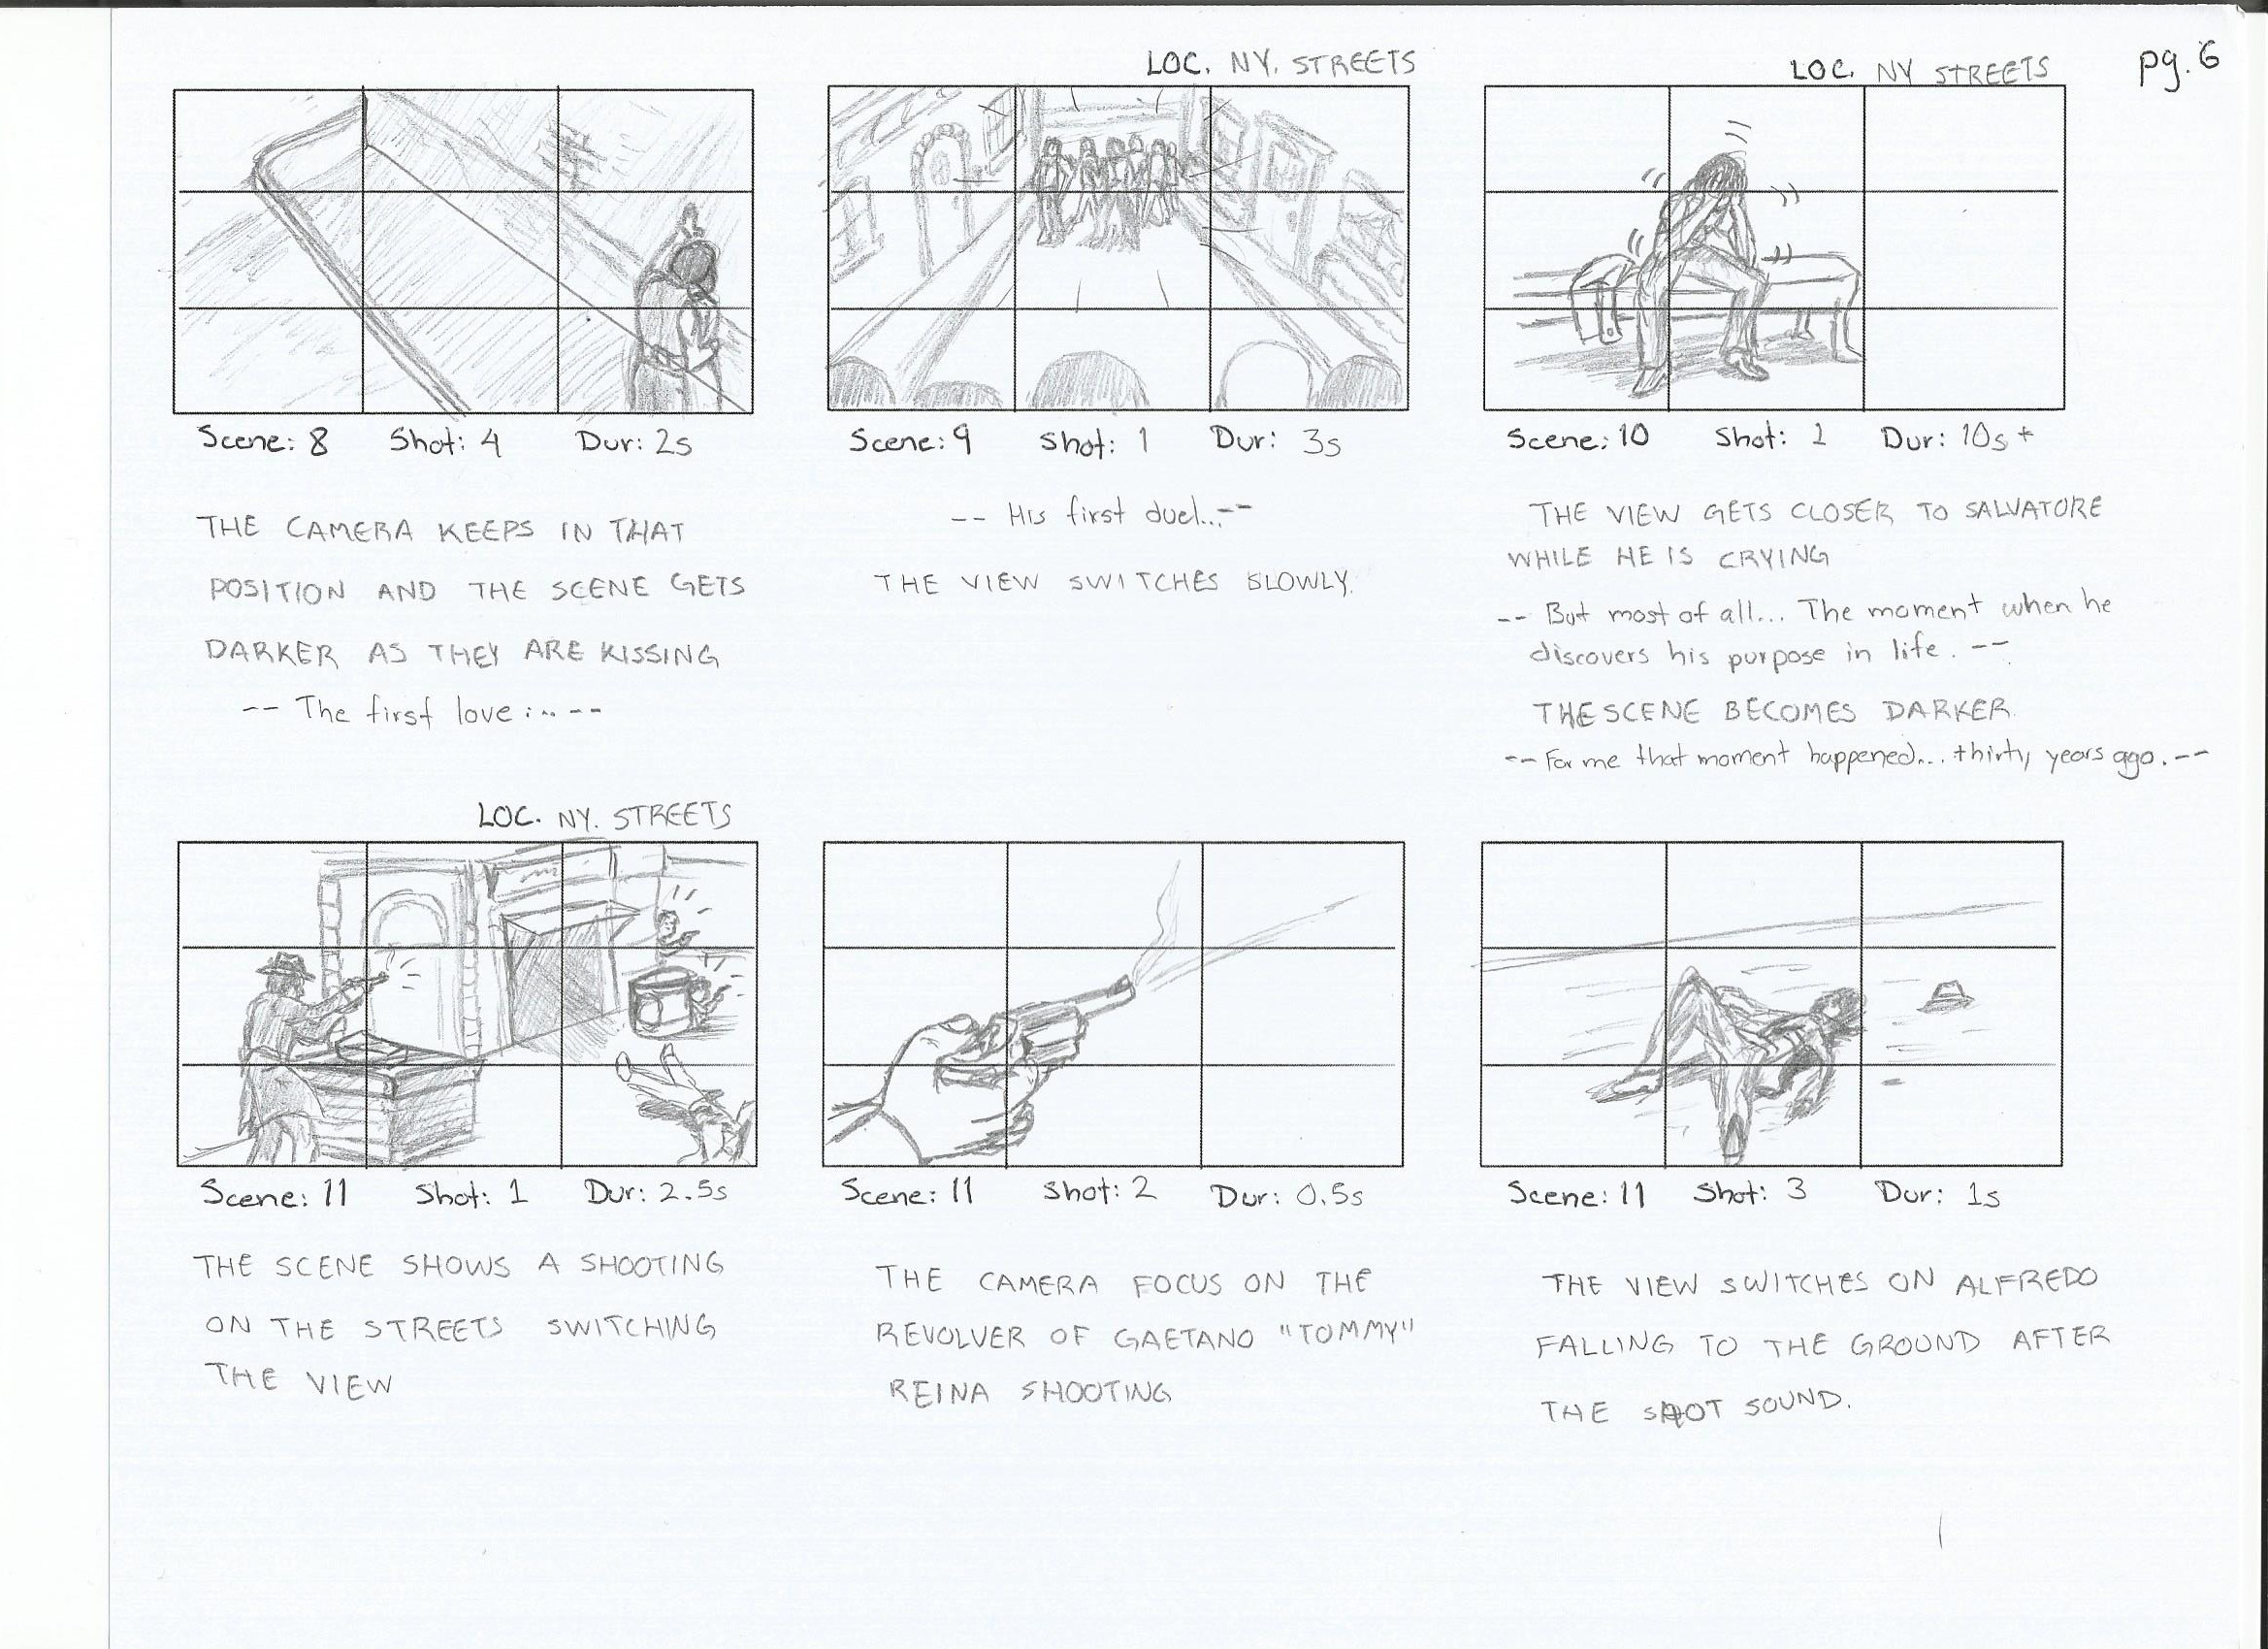 pg. 6
Scene: 8 Shot: 4 Dur: 2s
THE CAMERA KEEPS IN THAT
POSITION AND THE SCENE GETS
DARKER AS THEY ARE KISSING
-- The first love ... --
LOC. NY. STREETS
Scene: 9 Shot: 1 Dur: 3s
-- His first duel... --
THE VIEW SWITCHES SLOWLY.
LOC. NY STREETS
Scene: 10 Shot: 1 Dur: 10s +
THE VIEW GETS CLOSER TO SALVATORE
WHILE HE IS CRYING
-- But most of all... The moment when he
discovers his purpose in life. --
THE SCENE BECOMES DARKER
-- For me that moment happened... thirty years ago. --
LOC. NY. STREETS
Scene: 11 Shot: 1 Dur: 2.5s
THE SCENE SHOWS A SHOOTING
ON THE STREETS SWITCHING
THE VIEW
Scene: 11 Shot: 2 Dur: 0.5s
THE CAMERA FOCUS ON THE
REVOLVER OF GAETANO "TOMMY"
REINA SHOOTING
Scene: 11 Shot: 3 Dur: 1s
THE VIEW SWITCHES ON ALFREDO
FALLING TO THE GROUND AFTER
THE SHOT SOUND.